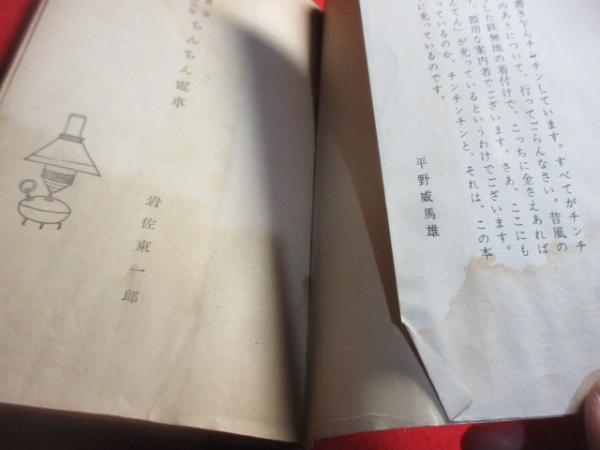 書き乍らチンチンしています。すべてがチンチ
のあとについて、行ってごらんなさい。昔風の
した鉄無地の着付けで、こっちに金さえあれば
、器用な案内者でございます。さあ、ここにも
んてん」が光っているというわけでございます。
っているのか、チンチンチンと、それは、この本
に光っているのです。
平野威馬雄
ちんちん電車
岩佐東一郎